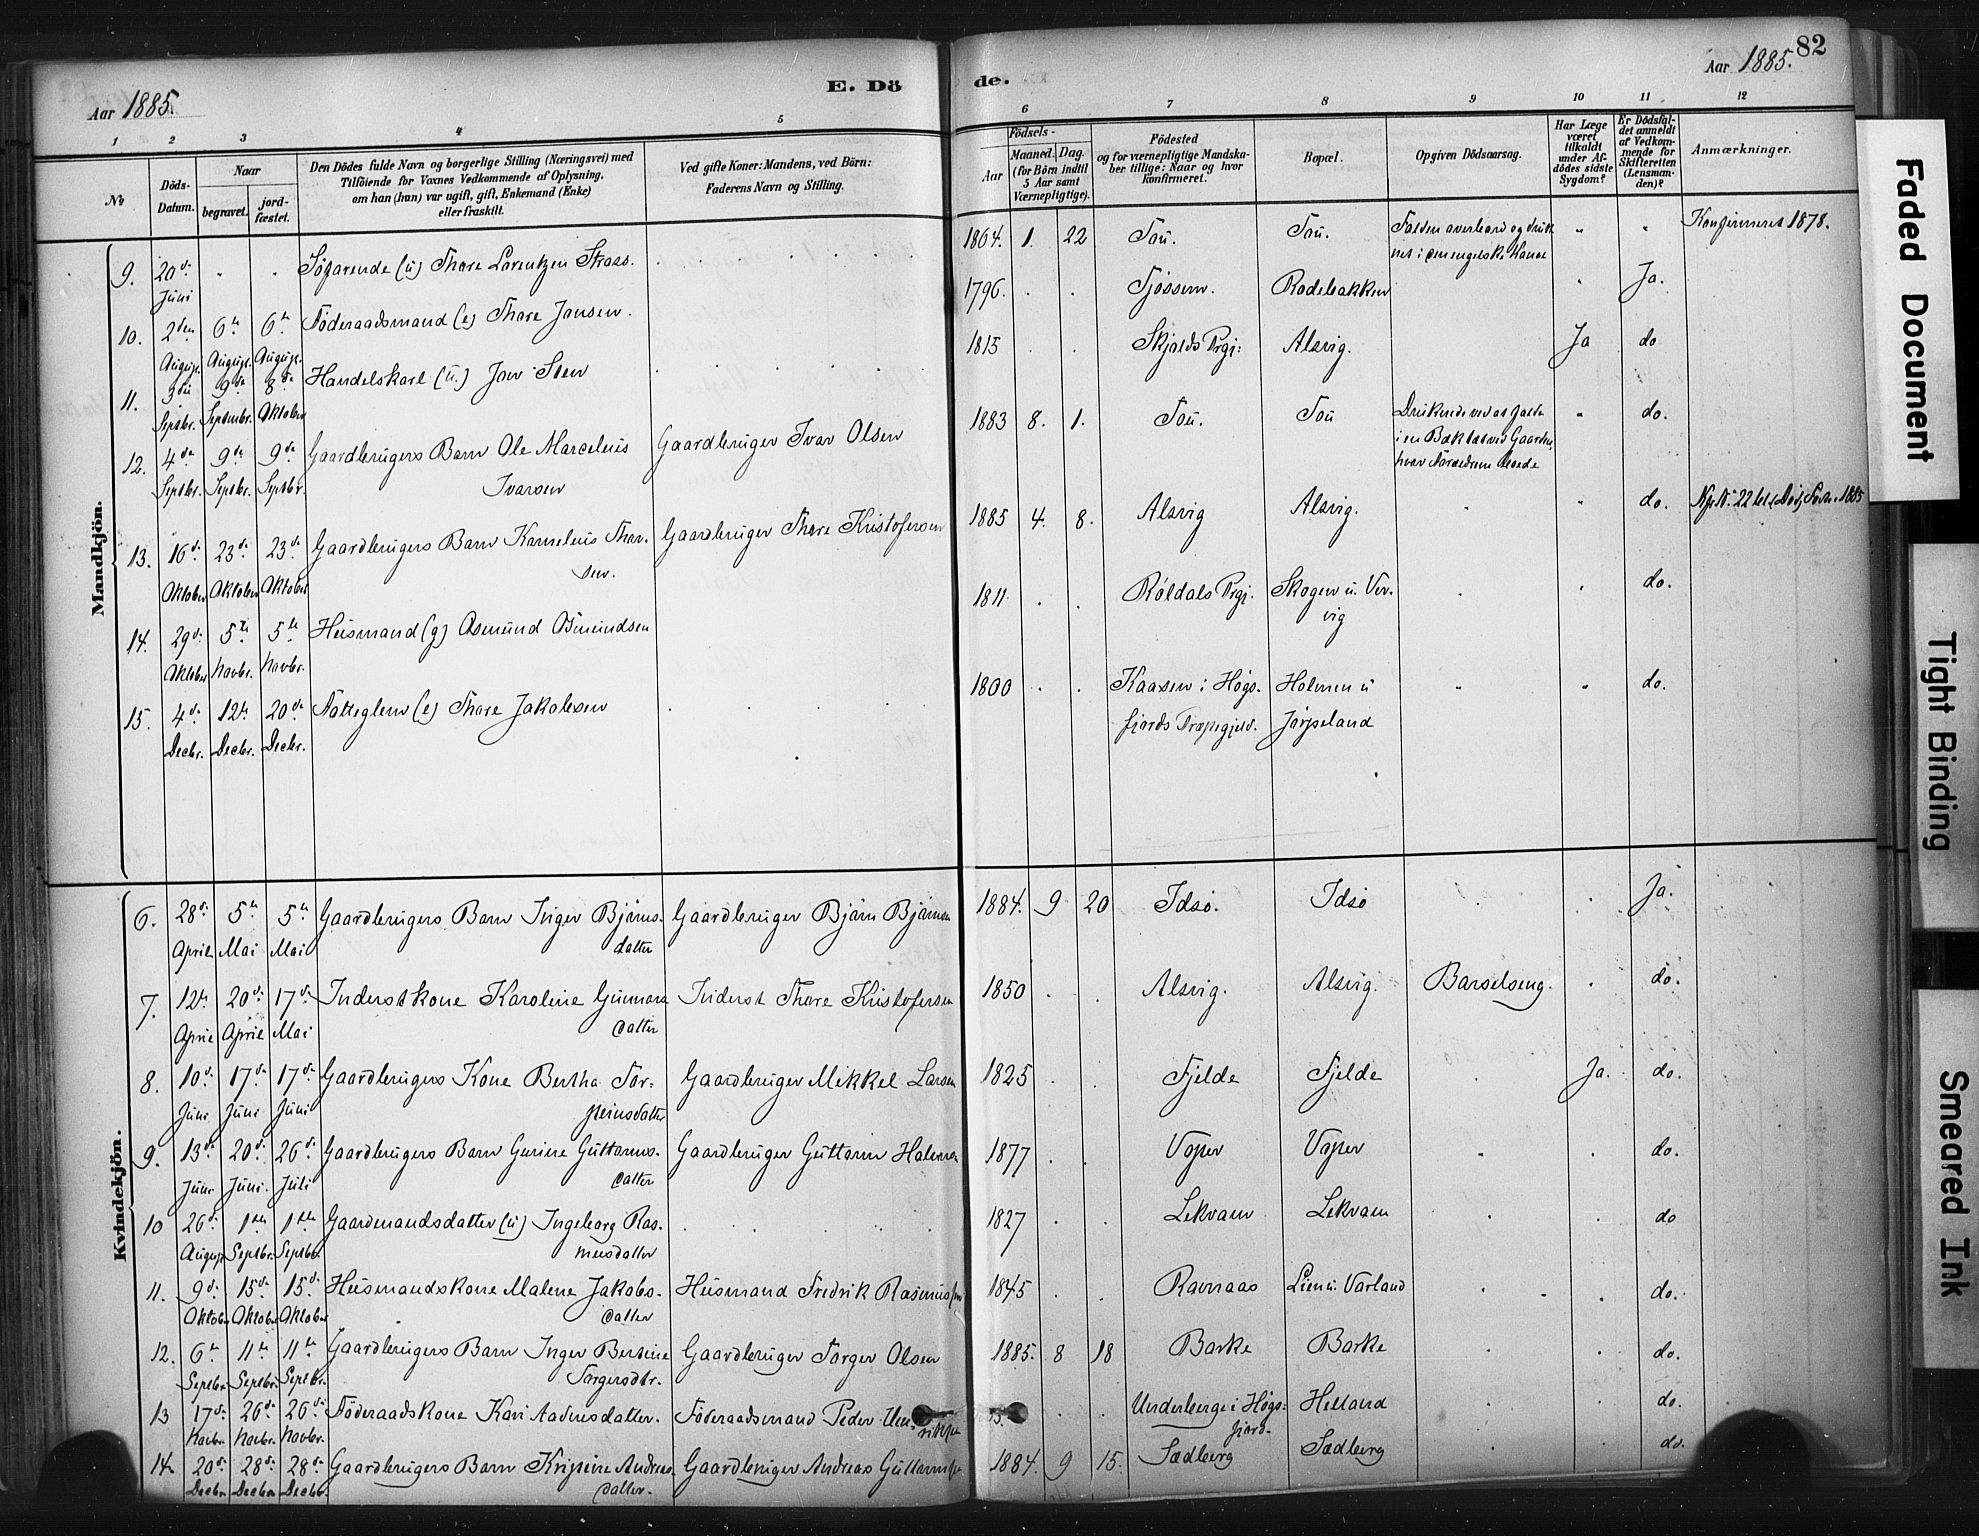 82
Aar 1885.
E. Dö
de.
Aar 1885.
1 2 3 4 5 6 7 8 9 10 11 12
No
Döds-Datum.
Naar
begravet.
jord-fæstet.
Den Dödes fulde Navn og borgerlige Stilling (Næringsvei) med
Tilföiende for Voxnes Vedkommende af Oplysning,
om han (hun) var ugift, gift, Enkemand (Enke)
eller fraskilt.
Ved gifte Koner: Mandens, ved Börn:
Faderens Navn og Stilling.
Födsels-
Aar
Maaned. Dag.
(for Börn indtil
5 Aar samt
Værnepligtige).
Födested
og for værnepligtige Mandska-
ber tillige: Naar og hvor
konfirmeret.
Bopæl.
Opgiven Dödsaarsag.
Har Læge
været
tilkaldt
under Af-
dödes sidste
Sygdom?
Er Dödsfal-
det anmeldt
af Vedkom-
mende for
Skifteretten
(Lensman-
den)?
Anmærkninger.
Mandkjön.
9. 20de Juni " " Søfarende (u) Thore Lorentzen 1864. 1. 22 Tou. Tou. " " Konfirmeret 1878.
10. 2den August 6te August 6te August Föderaadsmand (e) Thore Jansen. 1796. Tjøssem. Rodebakken Ja.
11. 3die Septbr. 9de Septembr. 8de Oktober Handelskarl (u.) Jon Sten 1815 Skjolds Prgj: Alsvig. Ja do
12. 4de Septbr. 9de Septbr. 9de Septbr. Gaardbrugers Barn Ole Marcelius
Ivarsen Gaardbruger Ivar Olsen 1883 8. 1. Tou. Tou " do.
13. 16de Oktober 23de Oktober 23de Oktober Gaardbrugers Barn Kornelius Thor-
sen. Gaardbruger Thore Kristofersen 1885 4. 8. Alsvig Alsvig. " do.
14. 29de Oktober 5te Novbr. 5te Novbr. Husmand (g) Osmund Osmundsen 1811 Röldals Prgj. Skogen u. Ver-
vig do.
15. 4de Decbr. 12te Decbr. 20de Decbr. Fattiglem (e) Thore Jakobsen 1800 Kaasen i Høgs-
fjords Præstegjeld. Holmen u
Jørpeland " " do.
Kvindekjön.
6. 28de April 5te Mai 5te Mai Gaardbrugers Barn Inger Bjørns-
datter Gaardbruger Bjørn Bjørnsen 1884. 9 20 Idsø. Idsø Ja.
7. 12te April 20de April 17de Mai Inderstkone Karoline Gunnars
datter Inderst Thore Kristofersen 1850 Alsvig. Alsvig. Barselseng. do.
8. 10de Juni 17de Juni 17de Juni Gaardbrugers Kone Bertha Tor-
steinsdatter Gaardbruger Mikkel Larsen 1825 Fjelde Fjelde Ja. do.
9. 13de Juni 20de Juni 26de Juli Gaardbrugers Barn Gurine Guttorms-
datter Gaardbruger Guttorm 1877 do.
10 26de August 1ste Septbr. 1ste Septbr. Gaardmandsdatter (u) Ingeborg Ras-
musdatter 1827 Lekvam Lekvam do
11. 9de Oktober 15de Oktober 15de Oktober Husmandskone Malene Jakobs-
datter Husmand Fredrik Rasmussen 1845 Ravnaas Lien u. Varland do.
12. 6te Septbr. 11te Septbr. 11te Septbr. Gaardbrugers Barn Inger Bertine
Torgersdtr. Gaardbruger Torger Olsen 1885. 8 18 Barke Barke do.
13 17de Novbr. 26de Novbr. 26de Novbr. Föderaadskone Kari Aadnesdatter. Föderaadsmand Peder Underberge i Høgs-
fjord. Helland do.
14 20de Decbr. 28de Decbr. 28de Decbr. Gaardbrugers Barn Kristine Andreas
datter. Gaardbruger Andreas Guttormsen 1884. 9 15. Sedberg Sedberg do.
Faded Document
Tight Binding
Smeared Ink